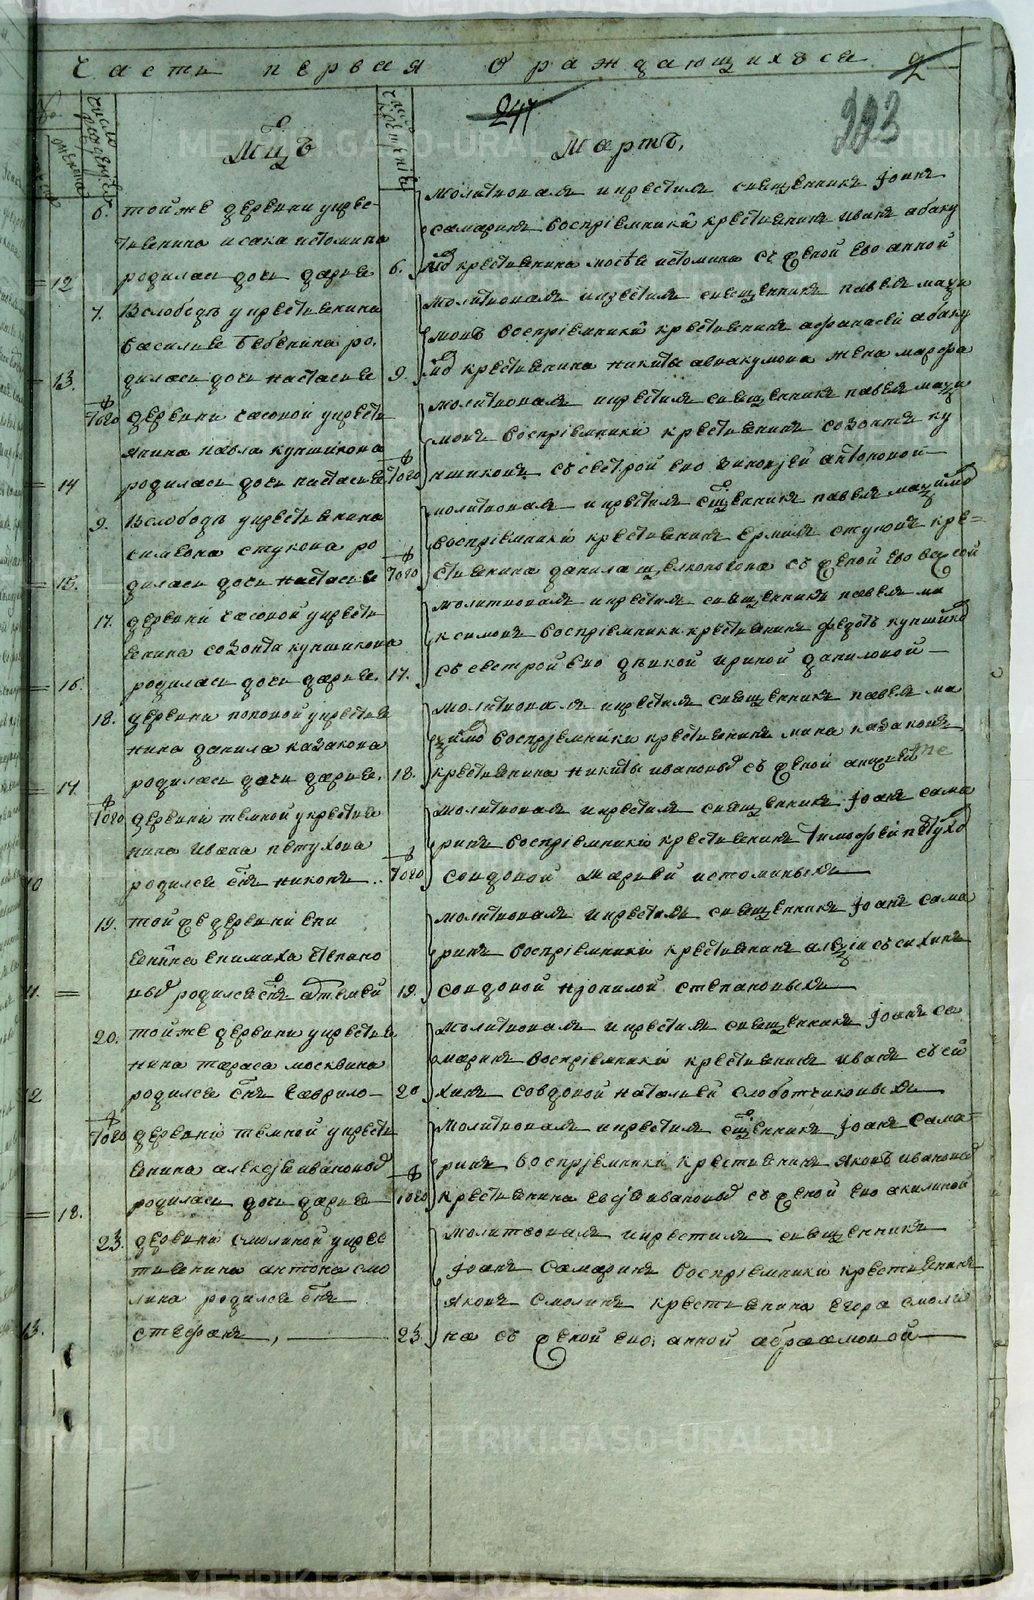 Часть первая О раждающихъся 2
247
393
Мцъ Мартъ,
6. тойже деревни укрес-
тьянина исака истомина
12 родилась дочь дарья 6.
молитвовалъ икрестилъ священникъ Iоанъ
самаринъ воспрiемники крестьянинъ иванъ абаку
мов крестьянина мосѣя истомина съ женой ево анной
7. Вслободѣ укрестьянина
василья
13. дилась дочь настасья 9.
молитвовалъ икрестилъ священникъ павелъ макси
мовъ воспрiемники крестьянинъ афанасей абаку
мов крестьянина никиты авакумова жена марфа
Того деревни часовой укресть
янина павла купшикова
14 родилась дочь настасья того
молитвовалъ икрестилъ священникъ павелъ макси
мовъ воспрiемники крестьянинъ созонтъ ку
пшиковъ съсестрой ево антоновой
9. Вслободѣ укрестьянина
симеона стукова ро
15. дилась дочь настасья Того
молитвовалъ икрестилъ священникъ павелъ максимо
воспрiемники крестьянинъ ермилъ стуковъ кре-
стьянина данила съ женой ево
17. деревни часовой укресть
янина созонта купшикова
16. родилась дочь дарья. 17.
молитвовалъ икрестилъ священникъ павелъ ма
ксимовъ воспрiемники крестьянинъ федотъ купшико
съсестрой ево дѣвкой ириной даниловой
18. деревни поповой укрестья
нина данила казакова
17. родилась дочь дарья. 18.
молитвовалъ икрестилъ священникъ павелъ ма
ксимо воспрiемники крестьянинъ мина казаковъ
крестьянина никиты иванова съ женой
Того деревни темной укрестья
нина ивана петухова
10 родился сынъ никонъ .. Того
молитвовалъ икрестилъ священникъ Iоанъ сама
ринъ воспрiемники крестьянинъ тимофей петухо
совдовой марьей истоминыхъ
19. тойже деревни
епимаха степано
11. выхъ родился сынъ артемей 19.
молитвовалъ икрестилъ священникъ Iоанъ сама
ринъ воспрiемники крестьянинъ
совдовой степановыхъ
20. тойже деревни укрестья
нина тараса москвина
12 родился сынъ гаврило 20
молитвовалъ икрестилъ священникъ Iоанъ са
маринъ воспрiемники крестьянинъ иванъ
совдовой натальей слоботчиковыхъ
Того деревни темной укресть
янина алексѣя иванова
18. родилась дочь дарья Того
молитвовалъ икрестилъ священникъ Iоанъ сама-
ринъ воспрiемники крестьянинъ яковъ иванов
крестьянина иванов съ женой ево акилиной
23. деревни смолиной укрес
тьянина антона смо
лина родился сынъ
13. стефанъ, 23.
молитвовалъ икрестилъ священникъ
Iоанъ самаринъ воспрiемники крестьянинъ
яковъ смолинъ крестьянина егора смоли
на съ женой ево анной абраамовой